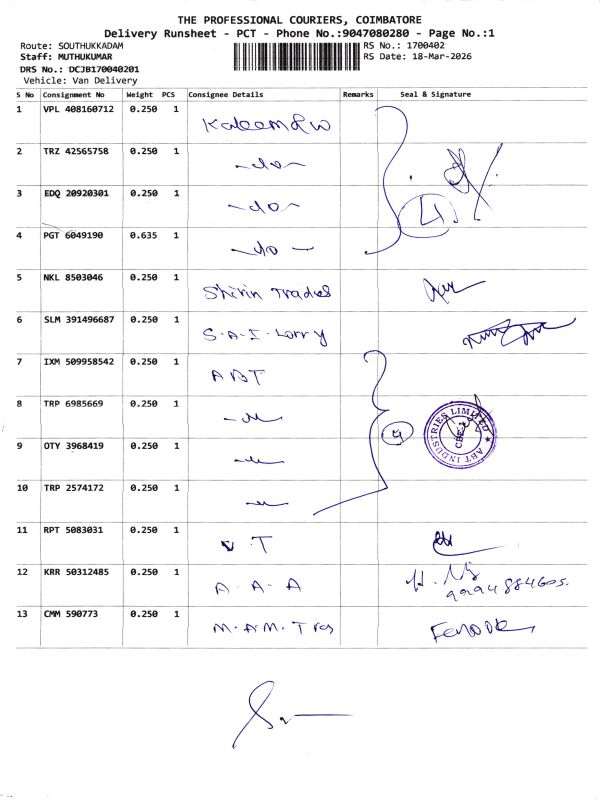 THE PROFESSIONAL COURIERS, COIMBATORE
Delivery Runsheet - PCT - Phone No.:9047080280 - Page No.:1
Route: SOUTHUKKADAM RS No.: 1700402
Staff: MUTHUKUMAR RS Date: 18-Mar-2026
DRS No.: DCJB170040201
Vehicle: Van Delivery
S No Consignment No Weight PCS Consignee Details Remarks Seal & Signature
1 VPL 408160712 0.250 1
2 TRZ 42565758 0.250 1 -do-
3 EDQ 20920301 0.250 1 -do-
4 PGT 6049190 0.635 1 -do-
4
5 NKL 8503046 0.250 1 Shirin Trades
6 SLM 391496687 0.250 1 S.A.I. Lorry
7 IXM 509958542 0.250 1 ABT
8 TRP 6985669 0.250 1
4
ABT INDUSTRIES LIMITED
9 OTY 3968419 0.250 1
10 TRP 2574172 0.250 1
11 RPT 5083031 0.250 1 V.T
12 KRR 50312485 0.250 1 A.A.A
13 CMM 590773 0.250 1 M.A.M.